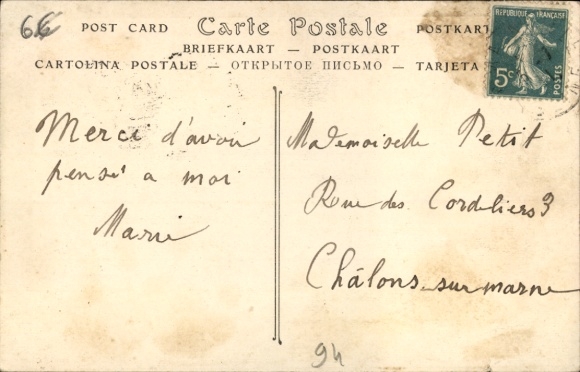 POST CARD Carte Postale POSTKARTE
BRIEFKAART — POSTKAART
CARTOLINA POSTALE — ОТКРЫТОЕ ПИСЬМО — TARJETA
RÉPUBLIQUE FRANÇAISE
5c
POSTES
Merci d'avoir
pensé a moi
Marie
Mademoiselle Petit
Rue des Cordeliers 3
Châlons-sur-marne
94